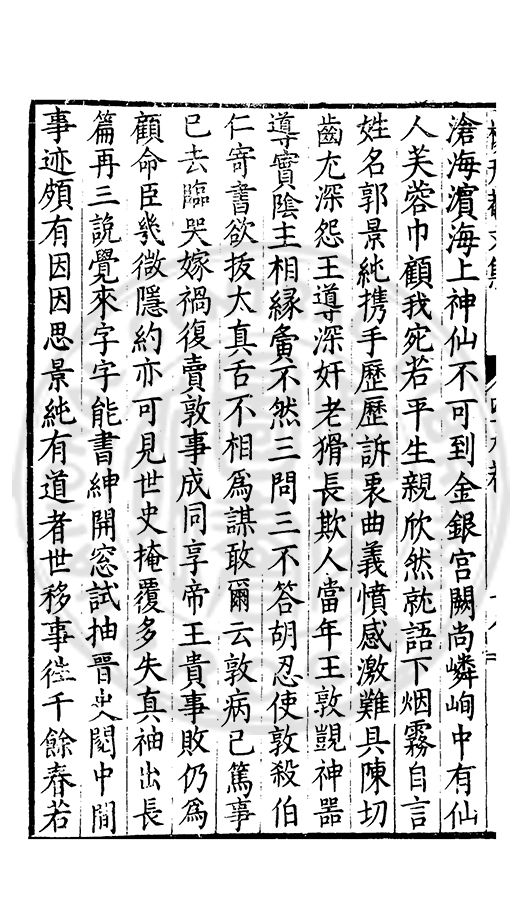 滄海濵海上神仙不可到金銀宫闕尚嶙峋中有仙
人芙蓉巾顧我宛若平生親欣然就語下烟霧自言
姓名郭景純携手歷歷訴衷曲義憤感激難具陳切
齒尤深怨王導深奸老猾長欺人當年王敦覬神器
導實隂主相緣夤不然三問三不答胡忍使敦殺伯
仁寄書欲拔太真舌不相爲謀敢爾云敦病已篤事
已去臨哭嫁禍復賣敦事成同享帝王貴事敗仍爲
顧命臣幾微隱約亦可見世史掩覆多失真袖出長
篇再三說覺來字字能書紳開窓試抽晋史閱中間
事迹頗有因因思景純有道者世移事徃千餘春若